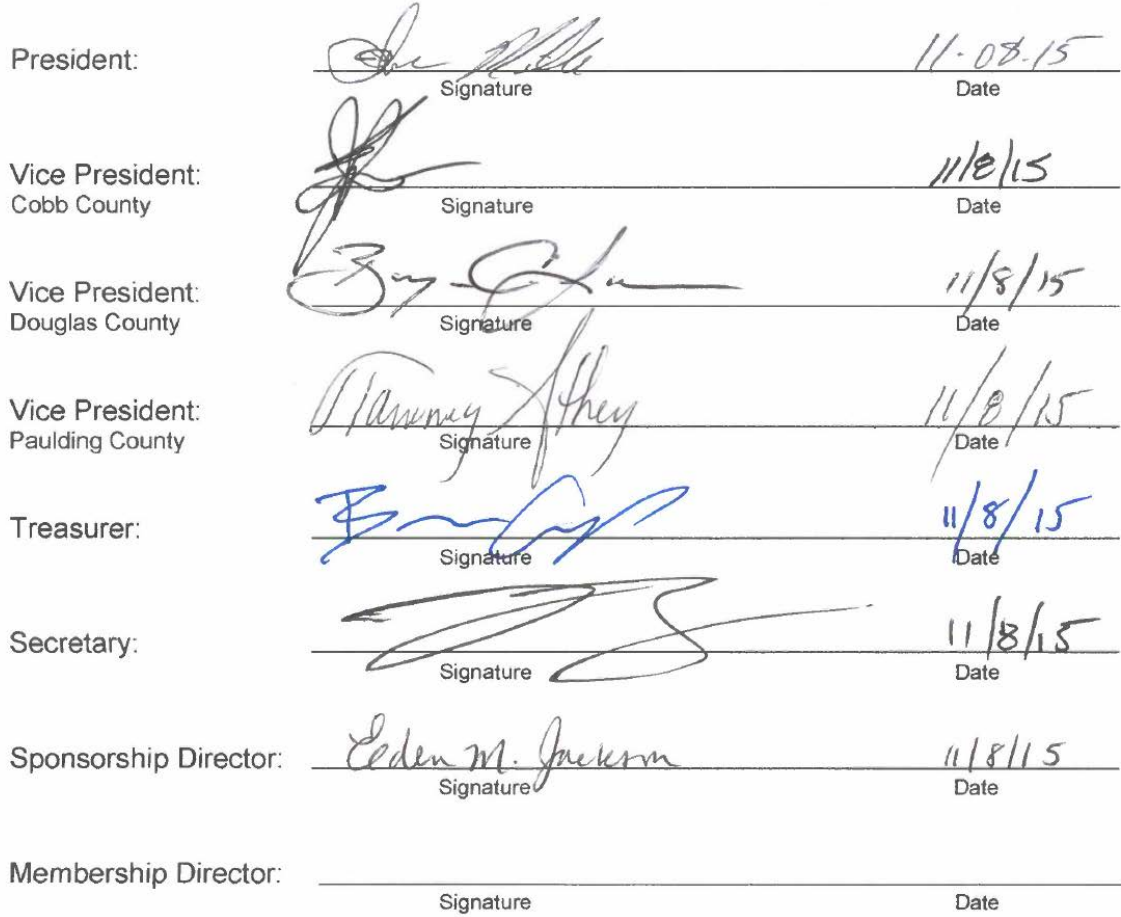 President: 11-08-15
Signature Date
Vice President: 11/8/15
Cobb County Signature Date
Vice President: 11/8/15
Douglas County Signature Date
Vice President: Tammey Athey 11/8/15
Paulding County Signature Date
Treasurer: 11/8/15
Signature Date
Secretary: 11/8/15
Signature Date
Sponsorship Director: Eeden M. Jackson 11/8/15
Signature Date
Membership Director:
Signature Date